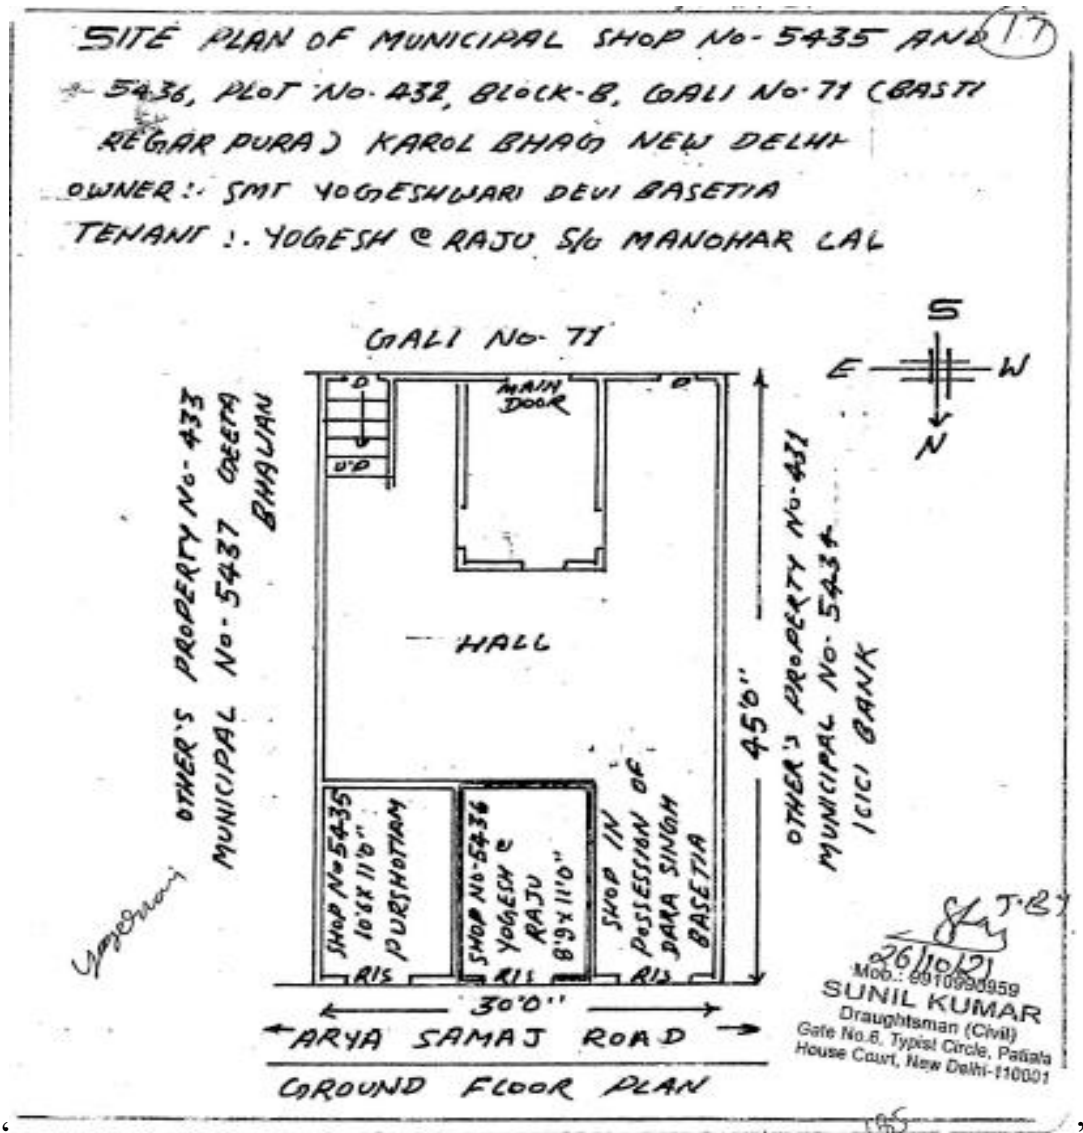 17
SITE PLAN OF MUNICIPAL SHOP No- 5435 AND
5436, PLOT No. 432, BLOCK-B, GALI No-71 (BASTI
REGAR PURA) KAROL BHAG NEW DELHI
OWNER:- SMT YOGESHWARI DEVI BASETIA
TENANT :. YOGESH @ RAJU S/o MANOHAR LAL
GALI No- 71
S
E W
N
D
MAIN
DOOR
D
UP
OTHER'S PROPERTY No- 433
MUNICIPAL No- 5437 GEETA
BHAWAN
HALL
45'0"
OTHER'S PROPERTY No-431
MUNICIPAL No- 5434
ICICI BANK
SHOP No 5435
10'6X11'0"
PURSHOTTAM
SHOP No-5436
YOGESH @
RAJU
8'9X11'0"
SHOP IN
POSSESSION OF
DARA SINGH
BASETIA
R/S
R/S
R/S
30'0"
ARYA SAMAJ ROAD
GROUND FLOOR PLAN
26/10/21
SUNIL KUMAR
Draughtsman (Civil)
Gate No.6, Typist Circle, Patiala
House Court, New Delhi-110001